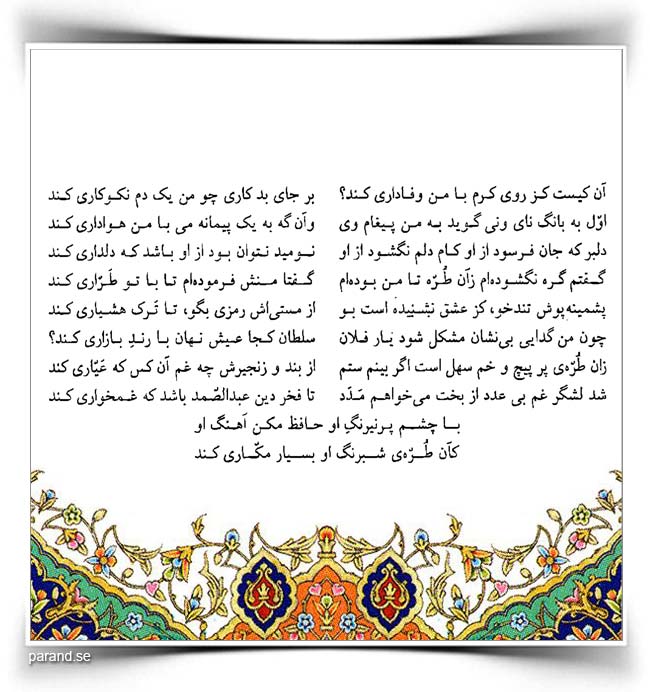 آن کیست کز روی کرم با من وفاداری کند؟ بر جای بد کاری چو من یک دم نکوکاری کند
اوّل به بانگ نای ونی گوید به من پیغام وی وآن گه به یک پیمانه می با من هواداری کند
دلبر که جان فرسود از او کام دلم نگشود از او نومید نتوان بود از او باشد که دلداری کند
گفتم گره نگشوده‌ام زآن طُرّه تا من بوده‌ام گفتا منش فرموده‌ام تا با تو طَرّاری کند
پشمینه‌پوش تندخو، کز عشق نشنیده است بو از مستی‌اش رمزی بگو، تا تَرک هشیاری کند
چون من گدایی بی‌نشان مشکل شود یار فلان سلطان کجا عیش نهان با رندِ بازاری کند؟
زان طُرّه‌ی پر پیچ و خم سهل است اگر بینم ستم از بند و زنجیرش چه غم آن کس که عَیّاری کند
شد لشگر غم بی عدد از بخت می‌خواهم مَدَد تا فخر دین عبدالصّمد باشد که غمخواری کند
با چشم پرنیرنگِ او حافظ مکن آهنگ او
کآن طُرّه‌ی شبرنگ او بسیار مکّاری کند
parand.se